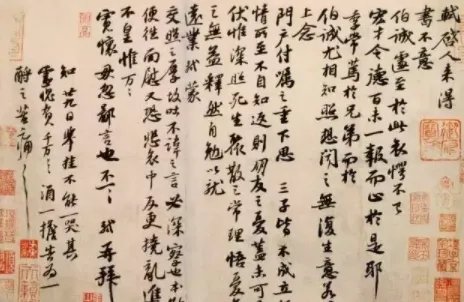 軾啓人來得
書不意
伯誠遽至於此哀愕不已
宏才令德百未一報而止於是耶
季常篤於兄弟而於
伯誠尤相知照想聞之無復生意若
上念
門戶付囑之重下思三子皆不成立
情所至不自知返則朋友之憂蓋未可
伏惟深照死生聚散之常理悟憂
之無益釋然自勉以就
遠業軾蒙
交照之厚故吐不諱之言必深察也本
便往面慰又恐悲哀中反更撓亂進
不皇惟万万
寬懷毋忽鄙言也不一一軾再拜
知廿九日舉掛不能一哭其
靈愧負千万千万酒一擔告為一
酹之苦痛苦痛